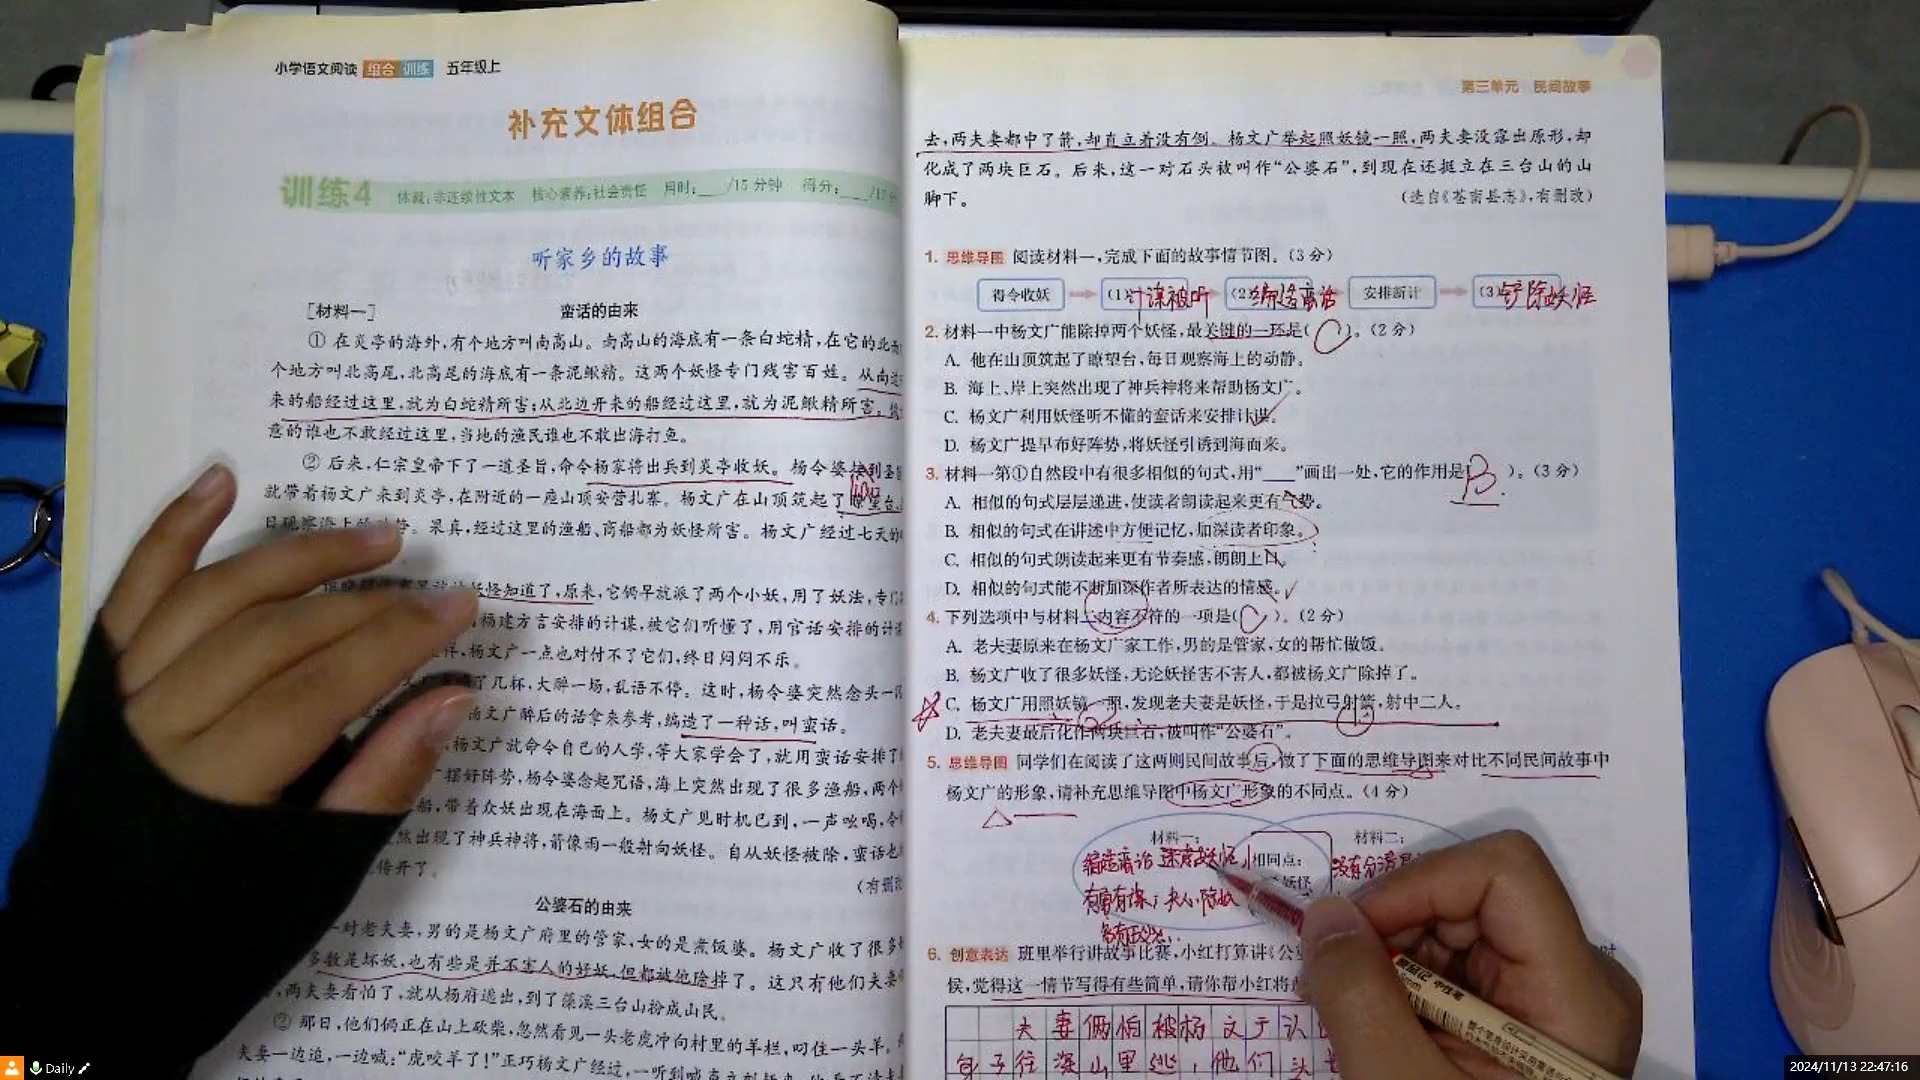 小学语文阅读 组合 训练 五年级上
补充文体组合
训练4 体裁:非连续性文本 核心素养:社会责任 用时:___/15分钟 得分:___/17分
听家乡的故事
[材料一] 蛮话的由来
① 在炎亭的海外,有个地方叫南高山。南高山的海底有一条白蛇精,在它的北
个地方叫北高尾,北高尾的海底有一条泥鳅精。这两个妖怪专门残害百姓。从南边
来的船经过这里,就为白蛇精所害;从北边开来的船经过这里,就为泥鳅精所害。
意的谁也不敢经过这里,当地的渔民谁也不敢出海打鱼。
② 后来,仁宗皇帝下了一道圣旨,命令杨家将出兵到炎亭收妖。杨令婆接到圣旨
就带着杨文广来到炎亭,在附近的一座山顶安营扎寨。杨文广在山顶筑起了瞭望台,
日观察海上的动静。果真,经过这里的渔船、商船都为妖怪所害。杨文广经过七天的
妖怪知道了,原来,它俩早就派了两个小妖,用了妖法,专门
福建方言安排的计谋,被它们听懂了,用官话安排的计谋
杨文广一点也对付不了它们,终日闷闷不乐。
了几杯,大醉一场,乱语不停。这时,杨令婆突然念头一闪
杨文广醉后的话拿来参考,编造了一种话,叫蛮话。
杨文广就命令自己的人学,等大家学会了,就用蛮话安排了
摆好阵势,杨令婆念起咒语,海上突然出现了很多渔船,两个
船,带着众妖出现在海面上。杨文广见时机已到,一声吆喝,令
然出现了神兵神将,箭像雨一般射向妖怪。自从妖怪被除,蛮话也
传开了。
(有删改
公婆石的由来
一对老夫妻,男的是杨文广府里的管家,女的是煮饭婆。杨文广收了很多
多数是坏妖,也有些是并不害人的好妖,但都被他除掉了。这只有他们夫妻
,两夫妻看怕了,就从杨府逃出,到了藻溪三台山扮成山民。
② 那日,他们俩正在山上砍柴,忽然看见一头老虎冲向村里的羊栏,叼住一头羊。
夫妻一边追,一边喊:“虎咬羊了!”正巧杨文广经过,一听到喊声
第三单元 民间故事
去,两夫妻都中了箭,却直立着没有倒。杨文广举起照妖镜一照,两夫妻没露出原形,却
化成了两块巨石。后来,这一对石头被叫作“公婆石”,到现在还挺立在三台山的山
脚下。 (选自《苍南县志》,有删改)
1. 思维导图 阅读材料一,完成下面的故事情节图。(3分)
得令收妖 (1)计谋被听 (2)编造蛮话 安排新计 (3)铲除妖怪
2. 材料一中杨文广能除掉两个妖怪,最关键的一环是( C )。(2分)
A. 他在山顶筑起了瞭望台,每日观察海上的动静。
B. 海上、岸上突然出现了神兵神将来帮助杨文广。
C. 杨文广利用妖怪听不懂的蛮话来安排计谋。
D. 杨文广提早布好阵势,将妖怪引诱到海面来。
3. 材料一第①自然段中有很多相似的句式,用“___”画出一处,它的作用是( B )。(3分)
A. 相似的句式层层递进,使读者朗读起来更有气势。
B. 相似的句式在讲述中方便记忆,加深读者印象。
C. 相似的句式朗读起来更有节奏感,朗朗上口。
D. 相似的句式能不断加深作者所表达的情感。
4. 下列选项中与材料二内容不符的一项是( C )。(2分)
A. 老夫妻原来在杨文广家工作,男的是管家,女的帮忙做饭。
B. 杨文广收了很多妖怪,无论妖怪害不害人,都被杨文广除掉了。
C. 杨文广用照妖镜一照,发现老夫妻是妖怪,于是拉弓射箭,射中二人。
D. 老夫妻最后化作两块巨石,被叫作“公婆石”。
5. 思维导图 同学们在阅读了这两则民间故事后,做了下面的思维导图来对比不同民间故事中
杨文广的形象,请补充思维导图中杨文广形象的不同点。(4分)
材料一: 材料二:
编造蛮话 相同点: 没有分清
妖怪
有勇有谋
6. 创意表达 班里举行讲故事比赛,小红打算讲《公 时
候,觉得这一情节写得有些简单,请你帮小红将
夫妻俩怕被杨文广认
包子往深山里逃,他们
Daily
2024/11/13 22:47:16